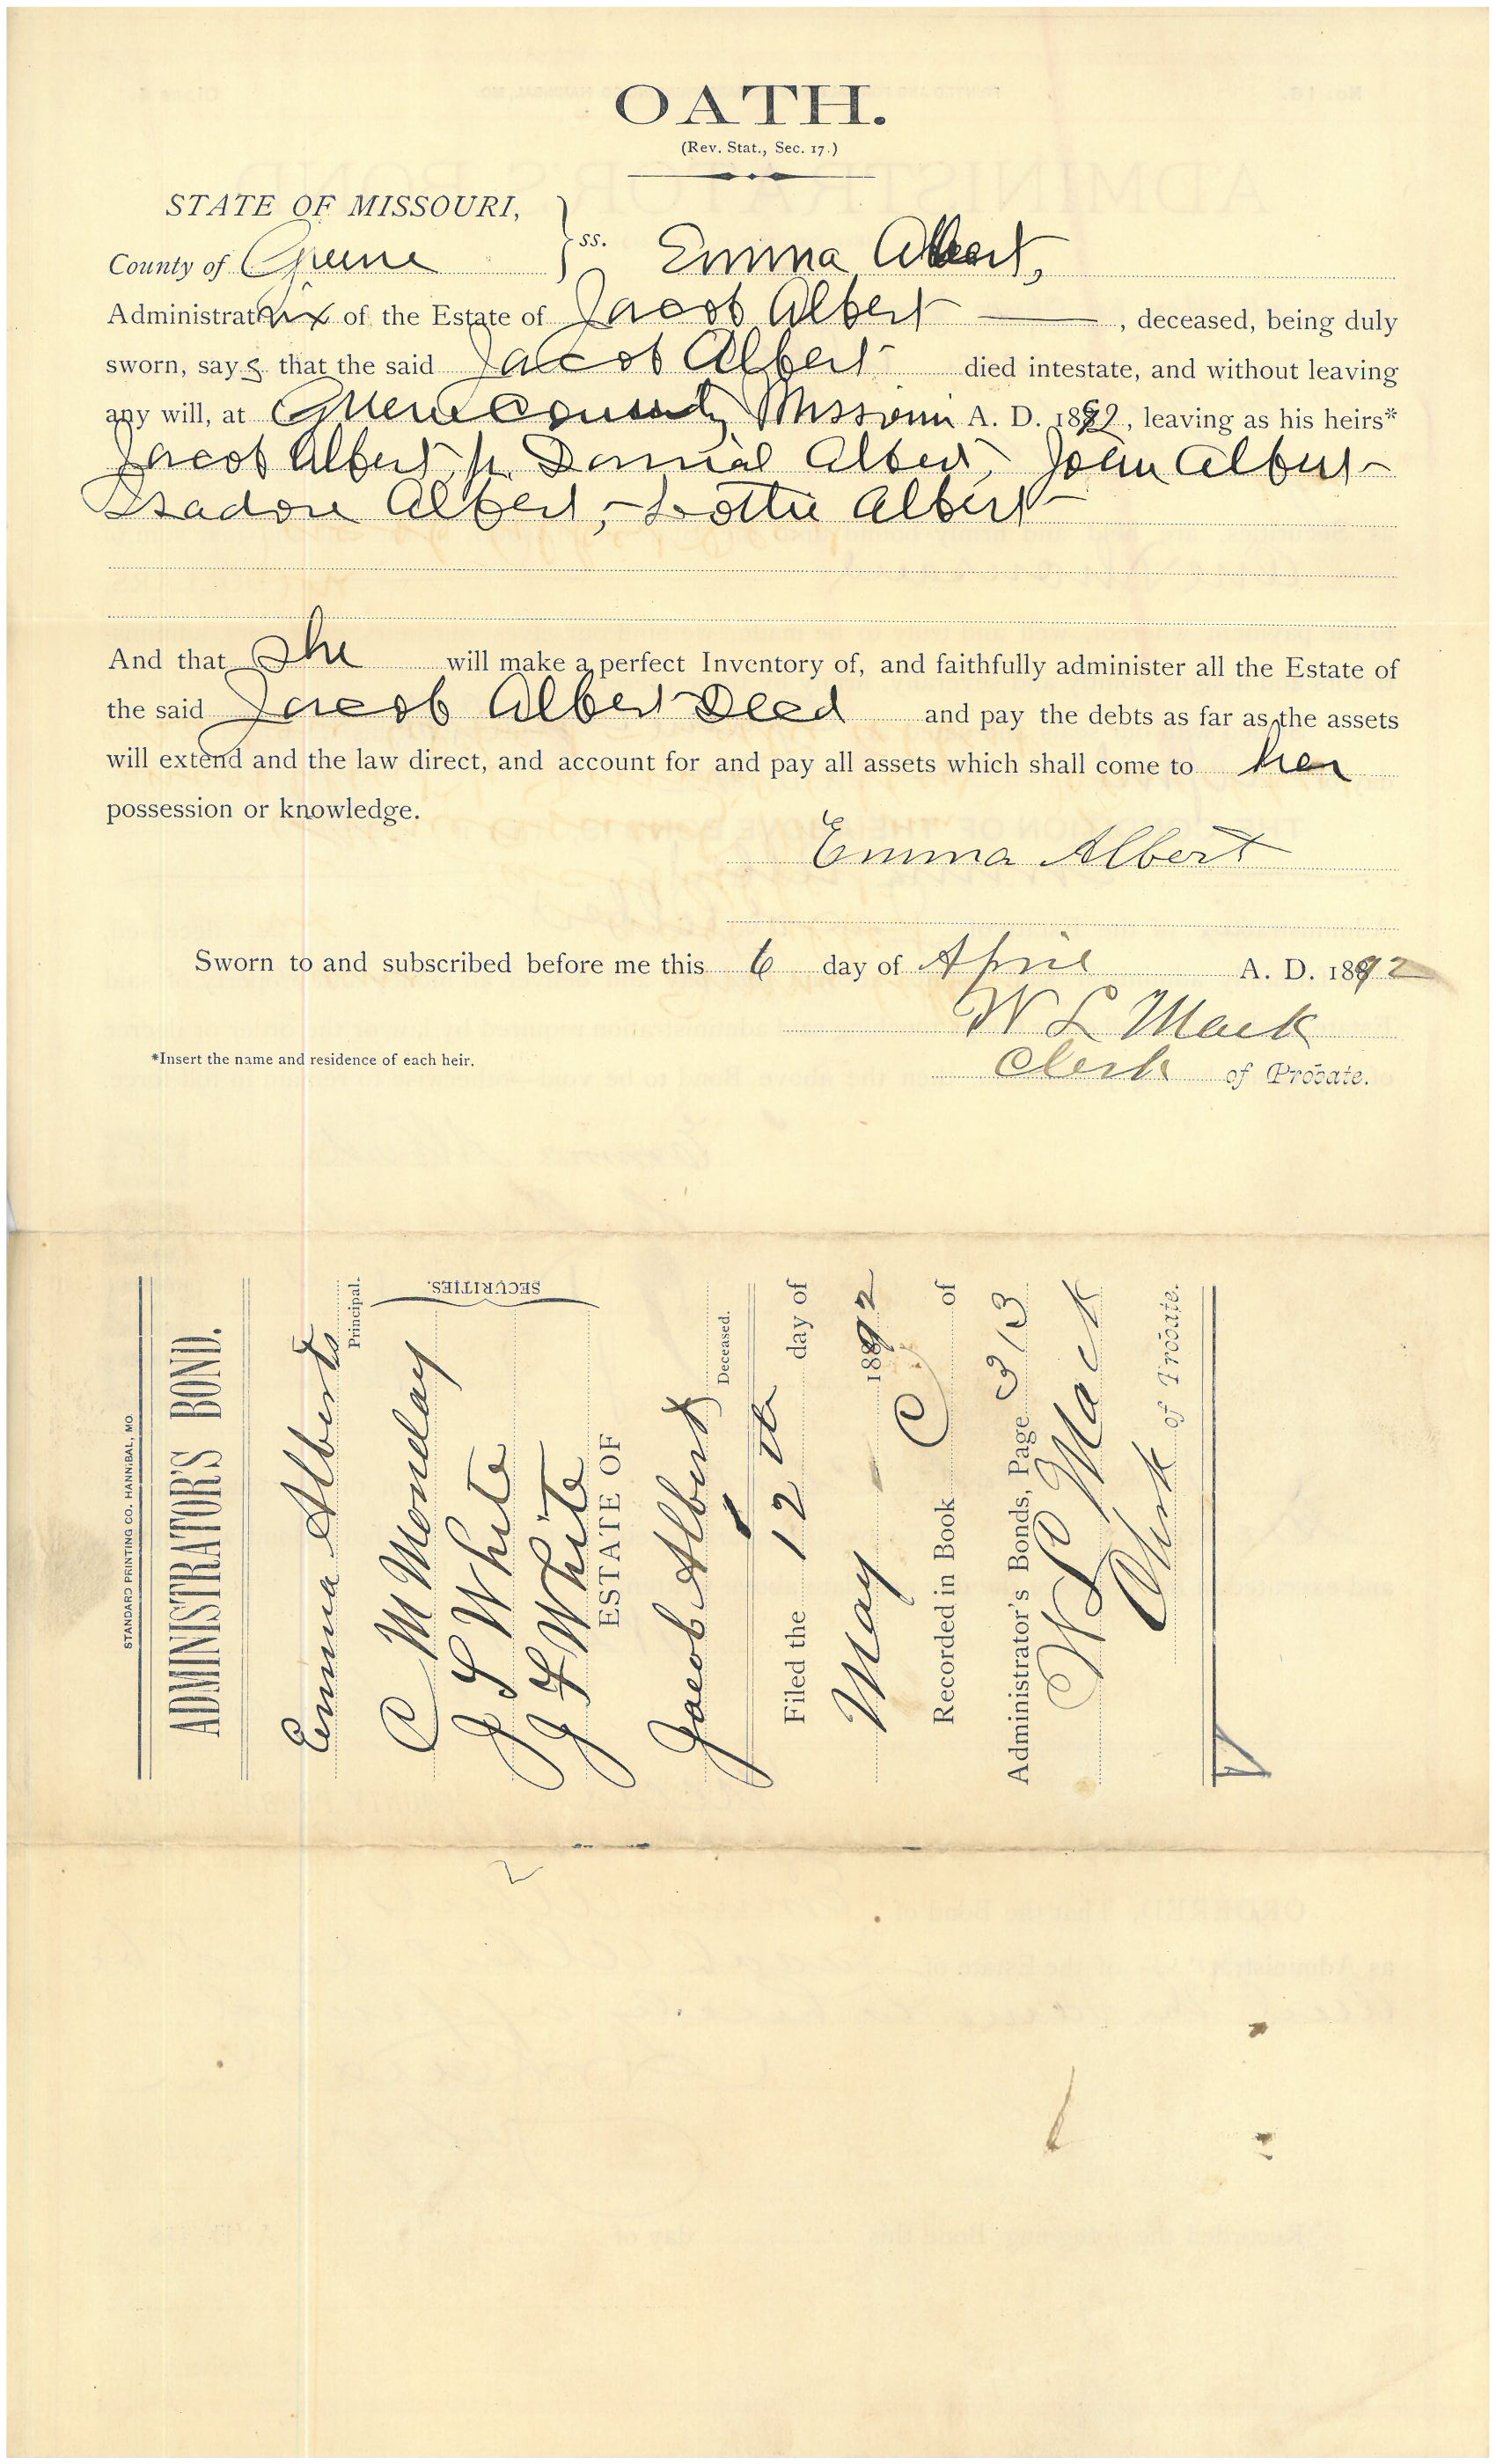 OATH.
(Rev. Stat., Sec. 17.)
STATE OF MISSOURI,
County of Greene ss. Emma Albert,
Administratrix of the Estate of Jacob Albert —, deceased, being duly
sworn, says that the said Jacob Albert died intestate, and without leaving
any will, at Greene County Missouri A. D. 1892, leaving as his heirs*
Jacob Albert jr. Danial Albert, John Albert
Isadore Albert, Lottie Albert
And that She will make a perfect Inventory of, and faithfully administer all the Estate of
the said Jacob Albert Decd and pay the debts as far as the assets
will extend and the law direct, and account for and pay all assets which shall come to her
possession or knowledge.
Emma Albert
Sworn to and subscribed before me this 6 day of April A. D. 1892
W L Mack
*Insert the name and residence of each heir.
Clerk of Probate.
STANDARD PRINTING CO. HANNIBAL, MO.
ADMINISTRATOR'S BOND.
Emma Alberts
Principal.
C M Monday
J S White
J F White
SECURITIES.
ESTATE OF
Jacob Albert
Deceased.
Filed the 12th day of
May 1892
Recorded in Book C of
Administrator's Bonds, Page 313
W L Mack
Clerk of Probate.